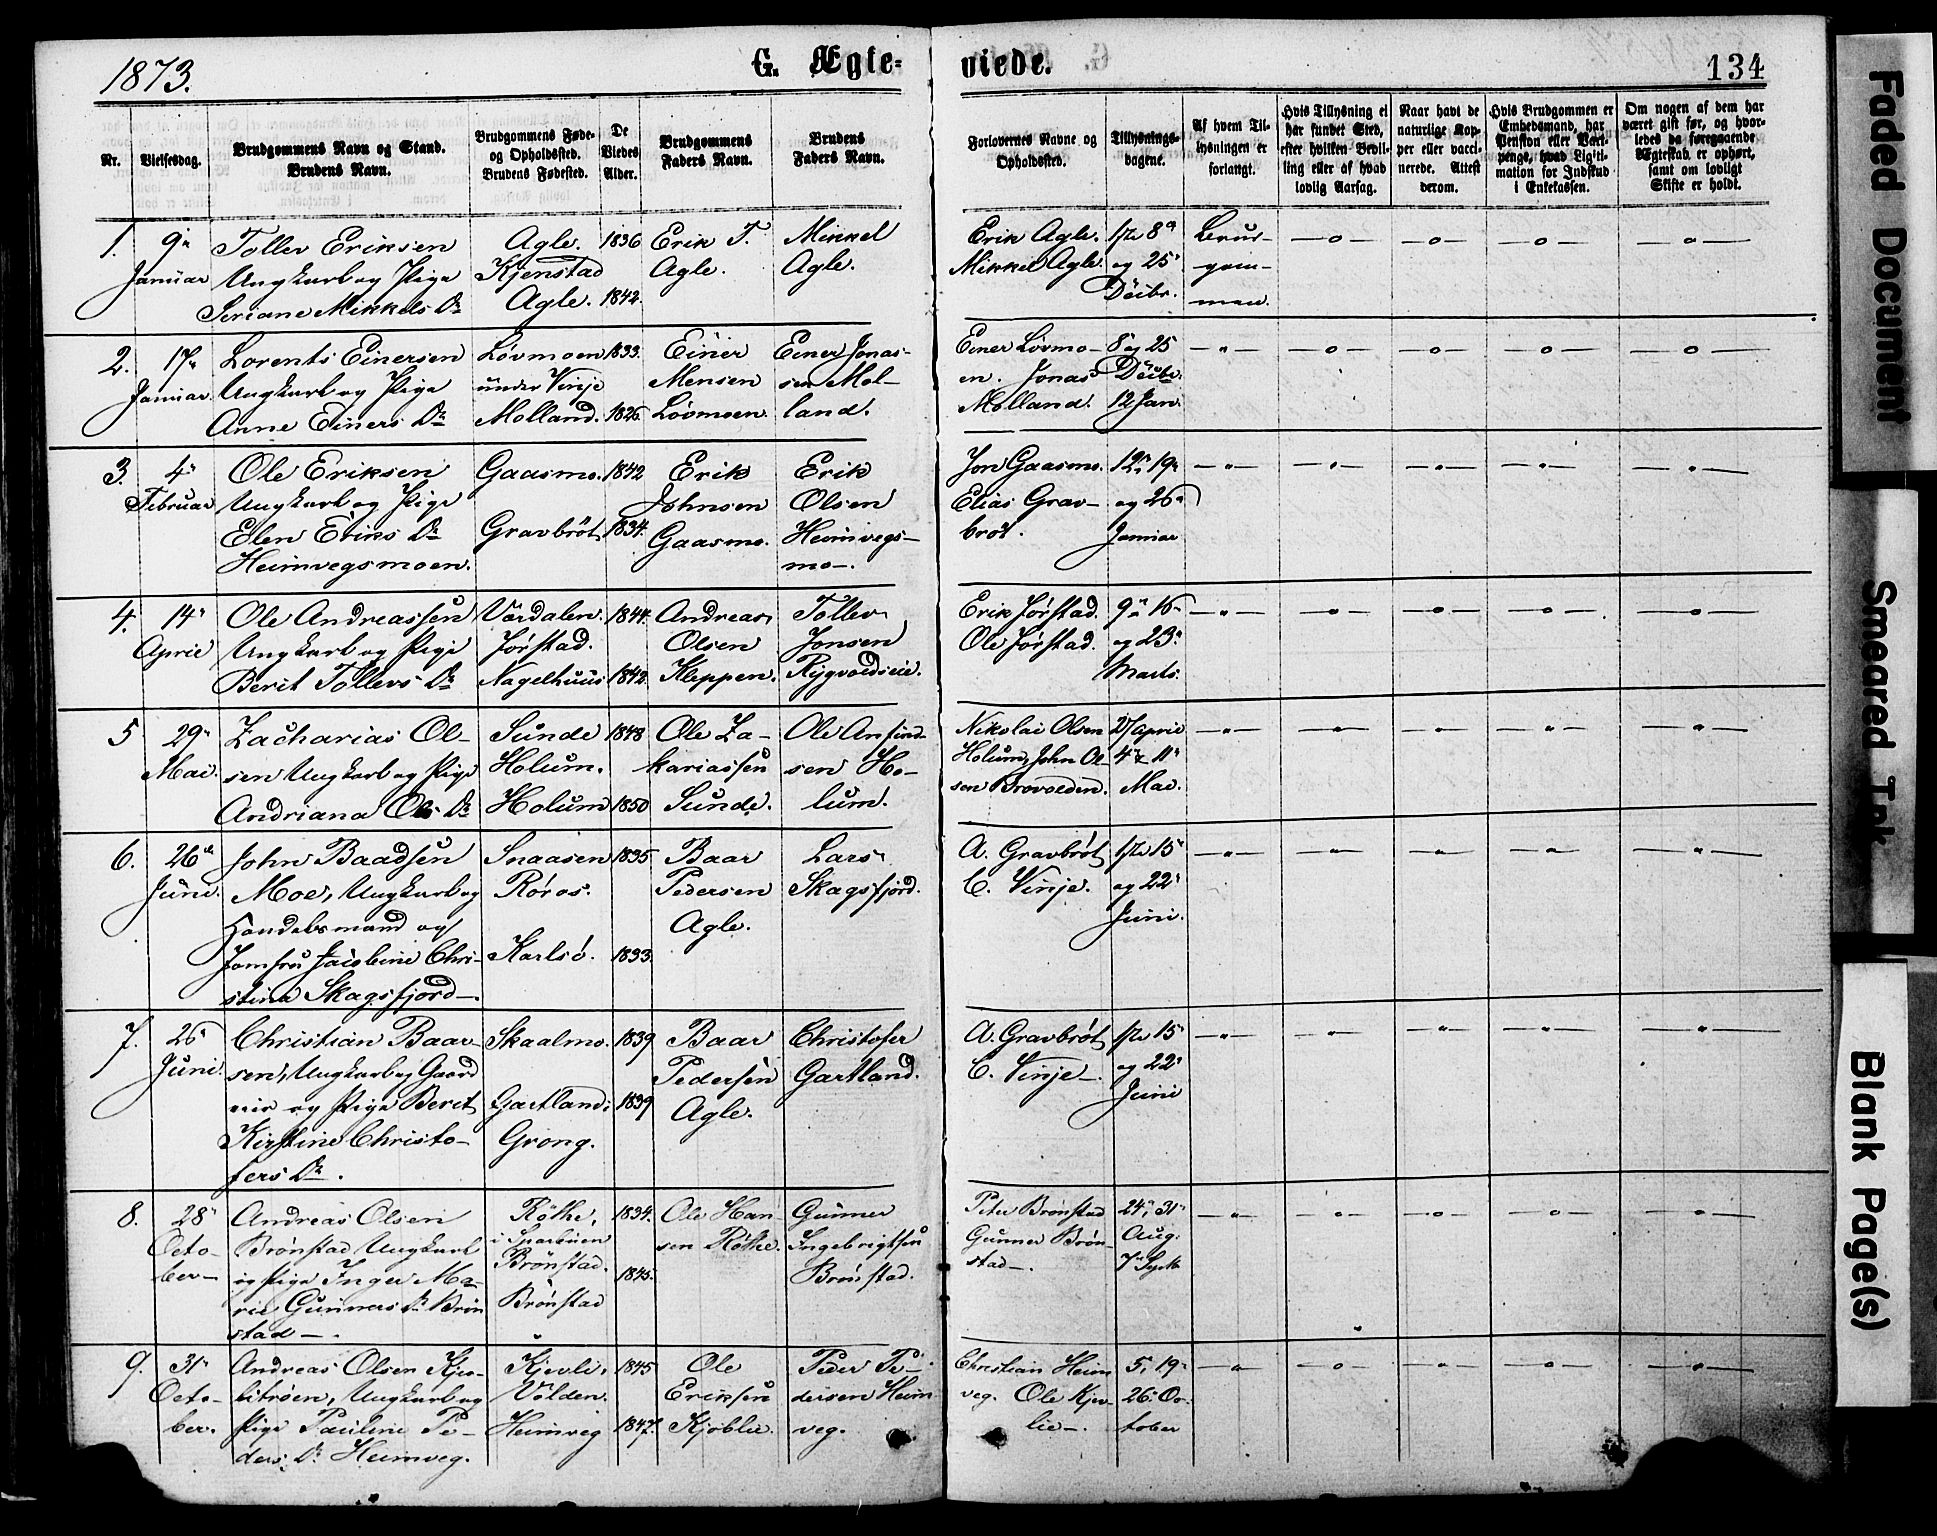 1873.
G. Ægte-
viede.
134
Nr.
Vielsesdag.
Brudgommens Navn og Stand.
Brudens Navn.
Brudgommens Føde-
og Opholdssted.
Brudens Fødested.
De
Viedes
Alder.
Brudgommens
Faders Navn.
Brudens
Faders Navn.
Forlovernes Navne og
Opholdssted.
Tillysnings-
dagene.
Af hvem Til-
lysningen er
forlangt.
Hvis Tillysning ei
har fundet Sted,
efter hvilken Bevil-
ling eller af hvad
lovlig Aarsag.
Naar havt de
naturlige Kop-
per eller vacci-
nerede. Attest
derom.
Hvis Brudgommen er
Embedsmand, har
Pension eller Vart-
penge, hvad Ligiti-
mation for Indskud
i Enkekassen.
Om nogen af dem har
været gift før, og hvor-
ledes da foregaaende
Ægteskab er ophørt,
samt om lovligt
Skifte er holdt.
1.
9de
Januar
Tollev Eriksen
Ungkarl og Pige
Seriane Mikkels Dr
Agle.
Kjenstad
Agle.
1836
1842.
Erik T.
Agle.
Mikkel
Agle.
Erik Agle.
Mikkel Agle.
1ste 8de
og 25
Decbr.
Brud-
gom-
men.
2.
17de
Januar
Lorents Einersen
Ungkarl og Pige
Anne Einers Dr
Løvmoen
under Vinje
Molland.
1833.
1826.
Einer
Mensen
Løvmoen.
Einer Jonas-
sen Mol-
land.
Einer Løvmo-
en. Jonas
Molland.
8 og 25
Decbr.
12 Jan.
3.
4
Februar
Ole Eriksen
Ungkarl og Pige
Elen Eriks Dr
Heimvegsmoen.
Gaasmo.
Gravbröt
1842
1834.
Erik
Johnsen
Gaasmo.
Erik
Olsen
Heimvegs-
mo-.
Jon Gaasmo.
Elias Grav-
bröt.
12, 19
og 26
Januar
4.
14
April
Ole Andreassen
Ungkarl og Pige
Berit Tollevs Dr
Værdalen.
Jørstad.
Nagelhuus
1844.
1842.
Andreas
Olsen
Kleppen.
Tollev
Jonsen
Rygvoldseie.
Erik Jørstad.
Ole Jørstad.
9 16
og 23
Marts.
5
29
Mai.
Zacharias Ol-
sen Ungkarl og Pige
Andriana Ols Dr
Sunde
Holum.
Holum
1848
1850
Ole Za-
kariassen
Sunde.
Ole Anfind-
sen Ho-
lum.
Nikolai Olsen
Holum, John Ol-
sen Brovolden.
27 April
4 11
Mai.
6.
26de
Juni.
John Baadsen
Moe, Ungkarl og
Handelsmand og
Jomfru Jacobine Chri-
stine Skagsfjord-.
Snaasen
Röros.
Karlsö.
1835
1833.
Baar
Pedersen
Agle.
Lars
Skagsfjord.
A. Gravbröt
C. Vinje.
1ste 15
og 22
Juni.
7.
26
Juni.
Christian Baar-
sen, Ungkarl og Gaard
eier og Pige Berit
Kirstine Christo-
fers Dr.
Skaalmo.
Gartland:
Grong.
1839
1839
Baar
Pedersen
Agle.
Christofer
Gartland.
A. Gravbröt
C. Vinje-.
1ste 15
og 22
Juni
8.
28
Octo-
ber-
Andreas Olsen
Brönstad Ungkarl
og Pige Inger Ma-
rie Gunners Dr Brön
stad-.
Röthe,
i Sparbuen
Brönstad.
Brönstad
1834.
1845.
Ole Han-
sen Röthe.
Gunner
Ingebrigtsen
Brönstad.
Peter Brönstad
Gunner Brön-
stad-.
24, 31
Aug.
7 Septb
9.
31
Octo-
ber.
Andreas Olsen
Ungkarl og
Pige Pauline Pe-
ders Dr Heimveg.
Kjevli,
Volden.
Heimveg
1845
1847.
Ole
Eriksen
Kjöblie.
Peder Pe-
dersen Heim-
veg.
Christian Heim
veg. Ole Kjev-
lie-.
5, 19
26 Oc-
tober
Faded Document
Smeared Ink
Blank Page(s)